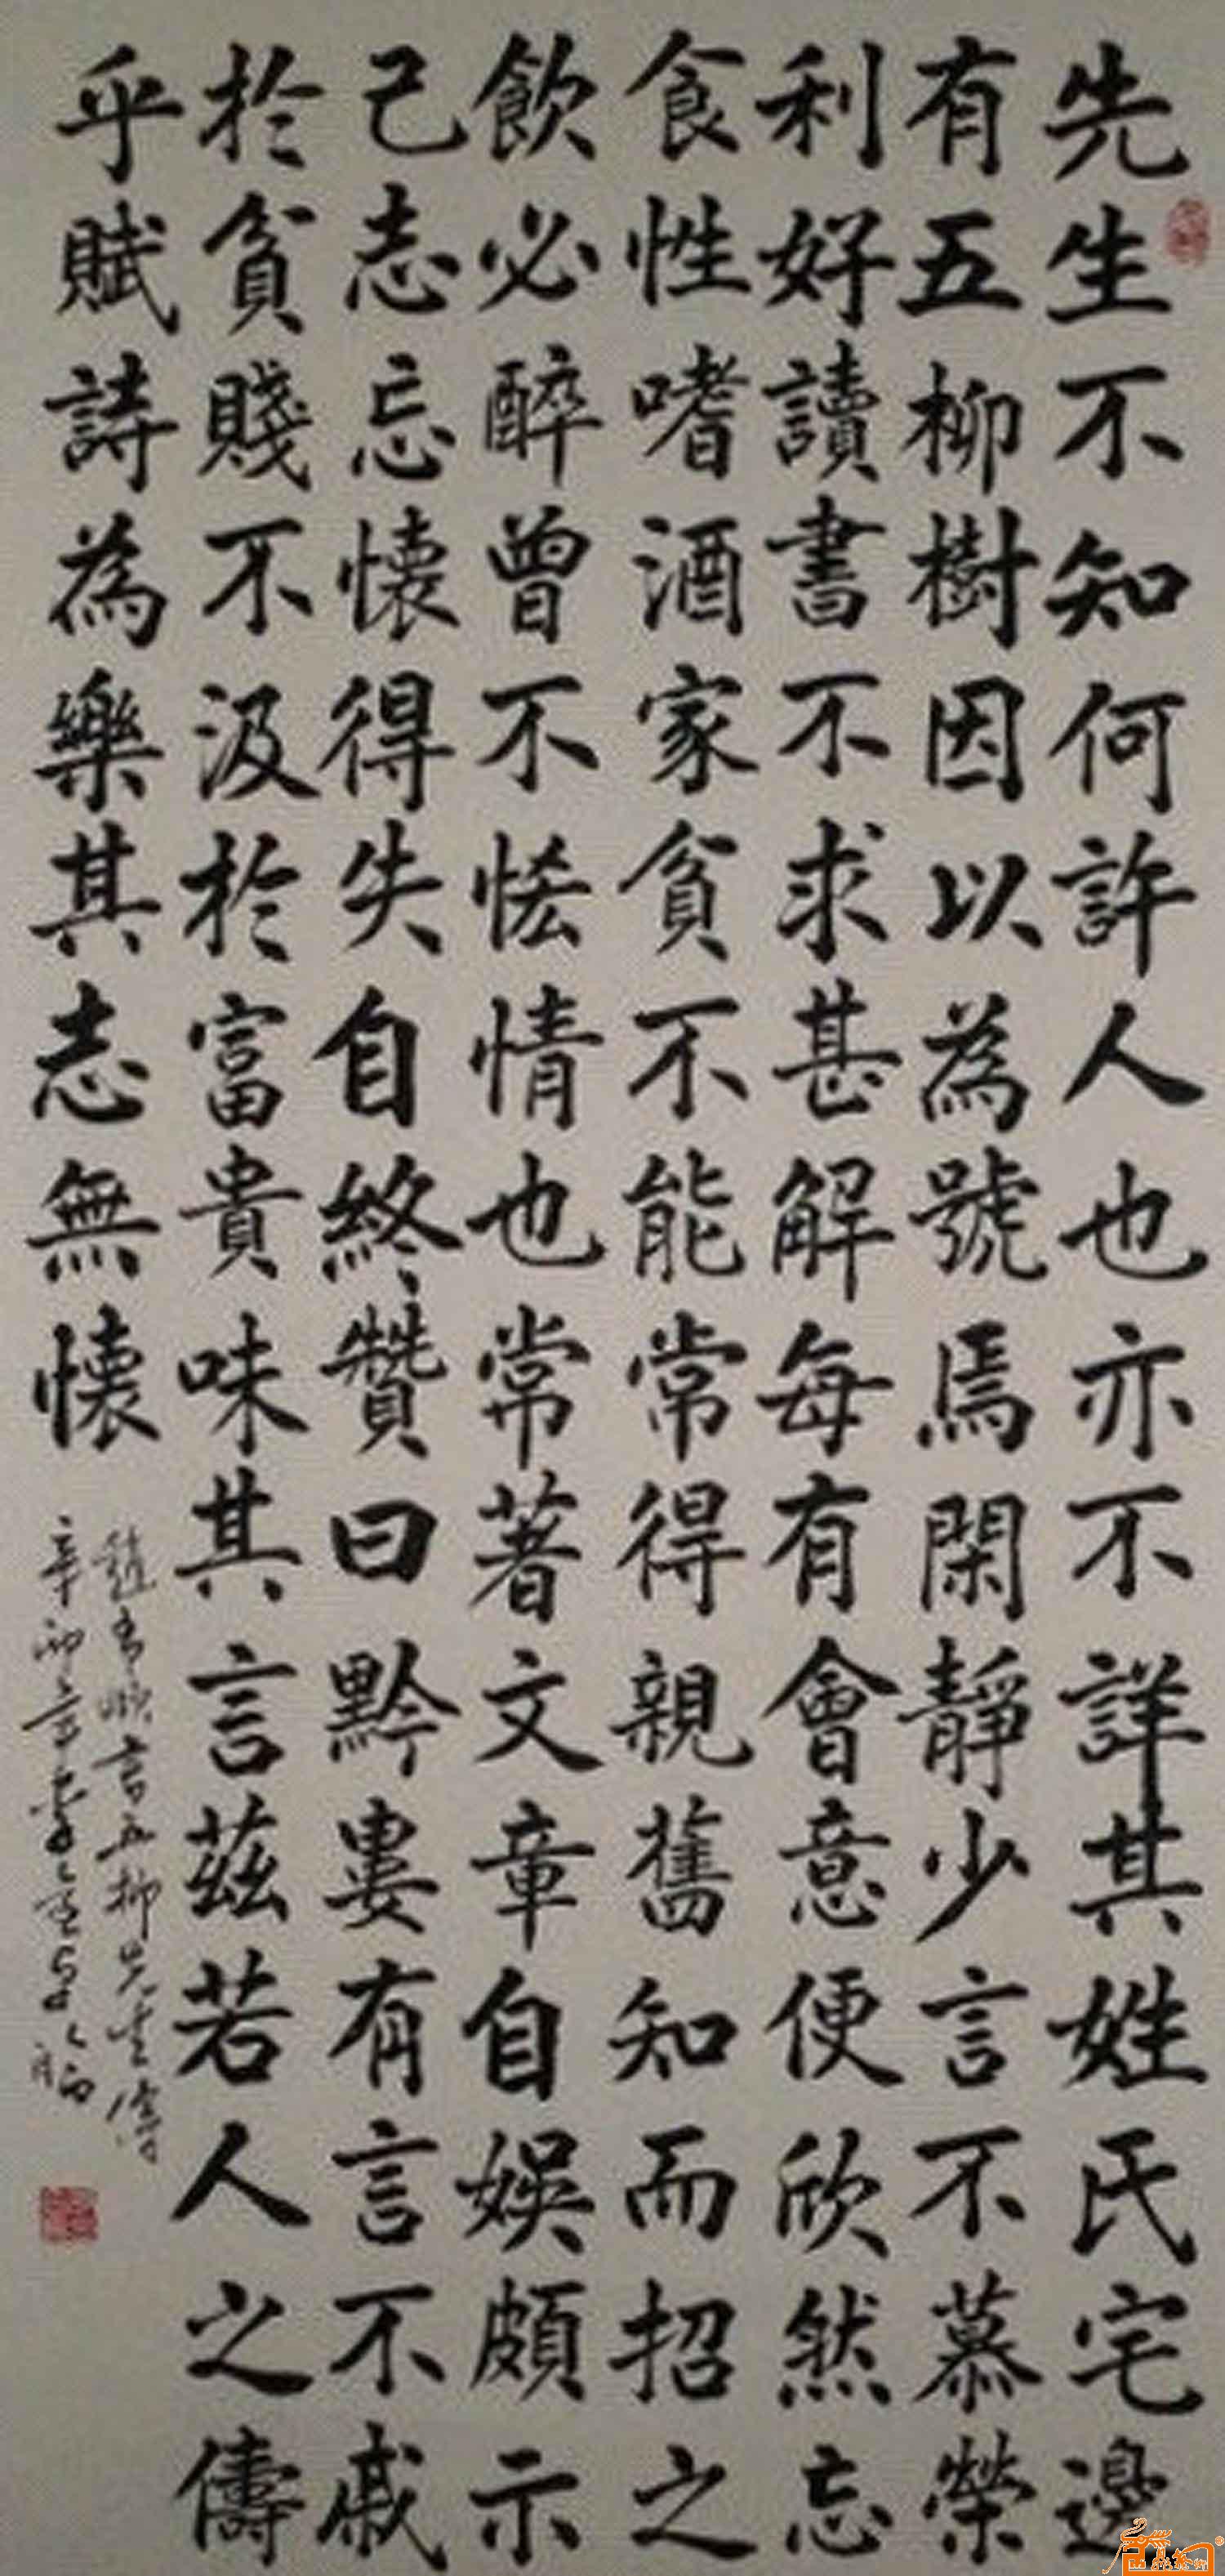 先生不知何許人也亦不詳其姓氏宅邊
有五柳樹因以為號焉閑靜少言不慕榮
利好讀書不求甚解每有會意便欣然忘
食性嗜酒家貧不能常得親舊知而招之
飲必醉曾不恡情也常著文章自娛頗示
己志忘懷得失自終贊曰黔婁有言不戚
於貧賤不汲於富貴味其言茲若人之儔
乎賦詩為樂其志無懷
趙孟頫書五柳先生傳
辛卯